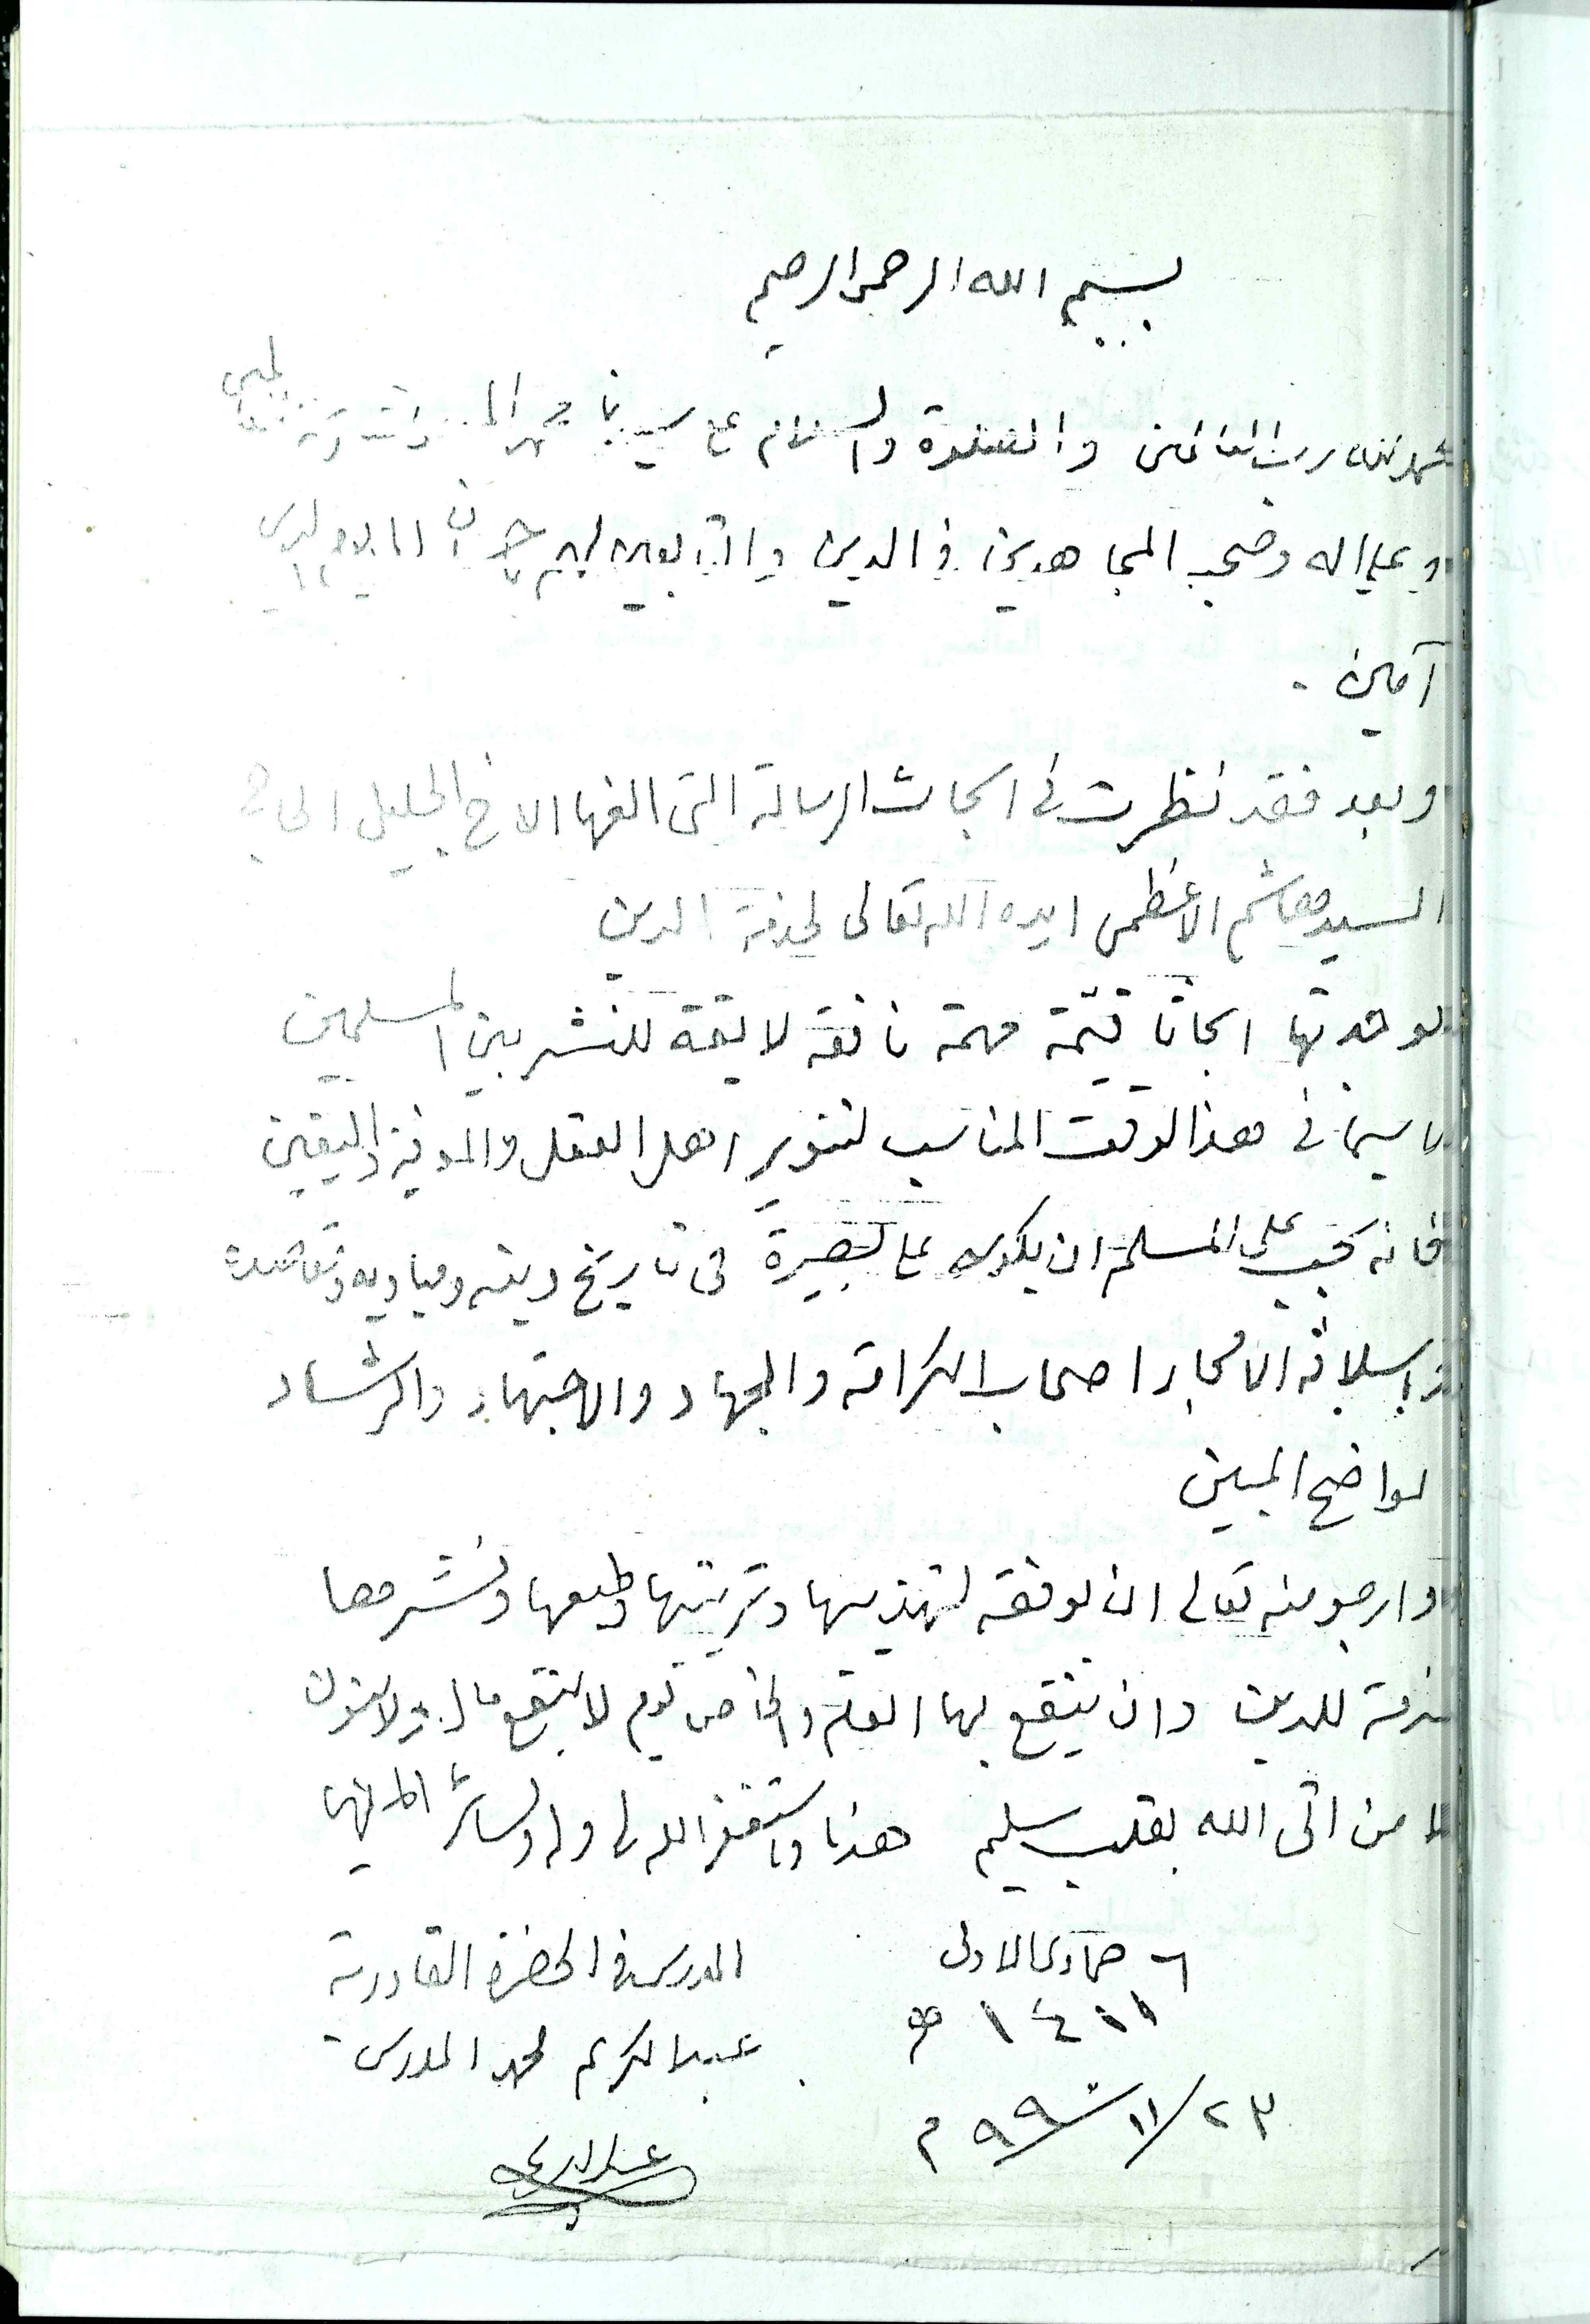 بسم الله الرحمن الرحيم
الحمد لله رب العالمين والصلوة والسلام على سيدنا محمد
وعلى اله وصحبه المجاهدين في الدين والتابعين لهم باحسان الى يوم الدين
آمين .
وبعد فقد نظرت في ابحاث الرسالة التى الفها الاخ الجليل الحاج
السيد هاشم الاعظمى ايده الله تعالى لخدمة الدين
فوجدتها ابحاثا قيّمة مهمة نافعة لايقة للنشر بين المسلمين
لاسيما في هذا الوقت المناسب لتنوير اهل العقل والمعرفة واليقين
فانه يجب على المسلم ان يكون على بصيرة في تاريخ دينه ومباديه
واسلافه الامجاد اصحاب الكرامة والجهاد والاجتهاد والرشاد
الواضح المبين
وارجو منه تعالى ان يوفقه لتهذيبها وترتيبها وطبعها ونشرها
خدمة للدين وان ينفع بها العام والخاص يوم لا ينفع مال ولا بنون
الا من اتى الله بقلب سليم هذا واستغفر الله لي وله ولسائر المؤمنين
٦ جمادى الاولى
١٤١١ هـ
٢٣/١١/٩٩٠ م
المدرس في الحضرة القادرية
عبدالكريم محمد المدرس
عبدالكريم